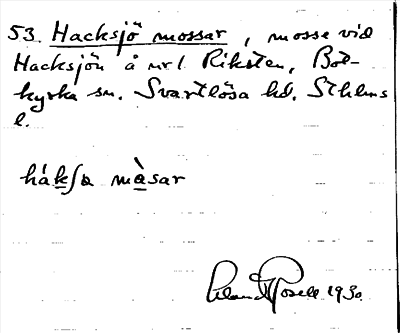 53. Hacksjö mossar, mosse vid
Hacksjön å nr 1 Riksten, Bot-
kyrka sn. Svartlösa hd. Sthlms
l.
håkʃɷ màsar
1930